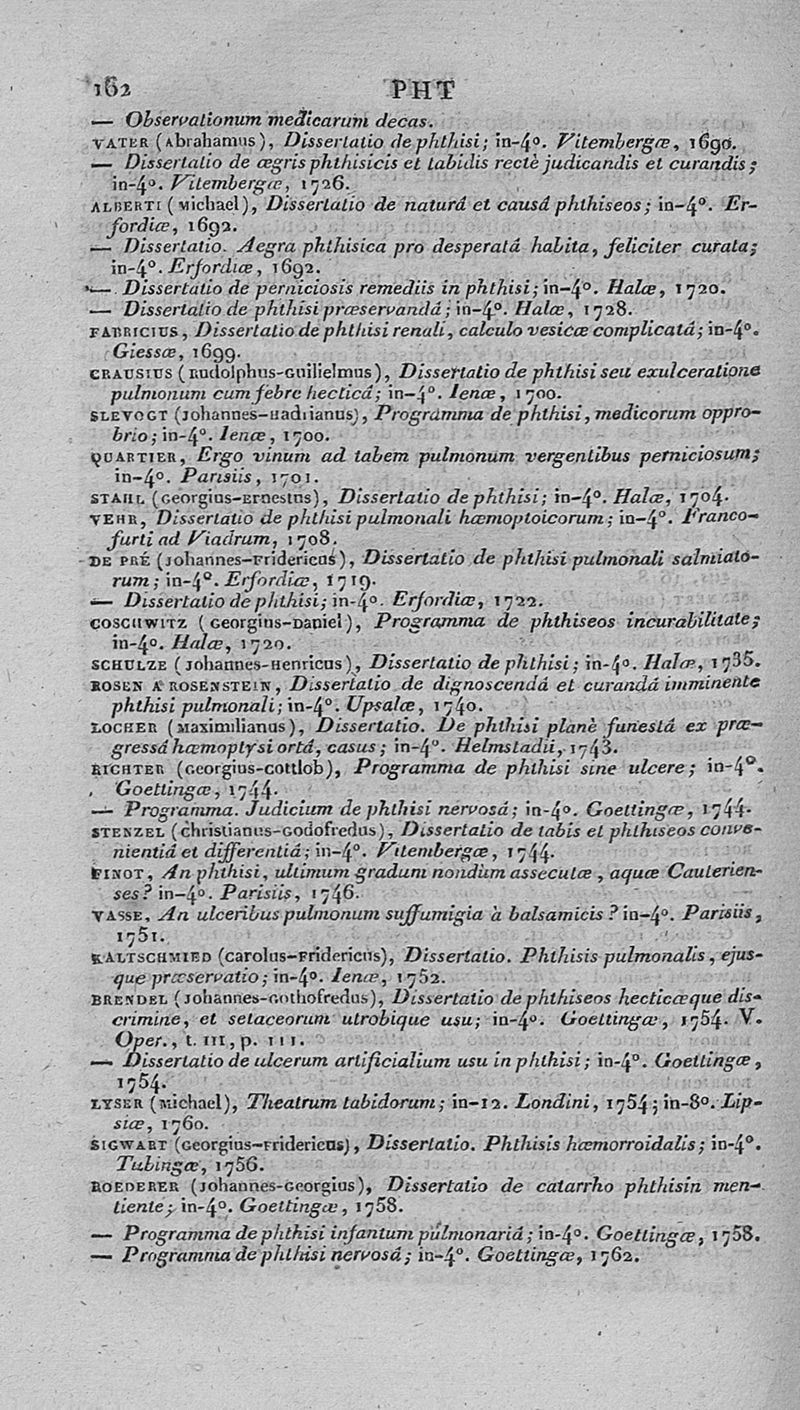 162 PHT
— Observationum medicarum decas.
VATER (Abrahamus), Dissertatio de phthisi; in-4°. Vitembergæ, 1690.
— Dissertatio de ægris phthisicis et tabidis rectè judicandis et curandis;
in-4°. Vitembergæ, 1726.
ALBERTI (Michael), Dissertatio de naturâ et causâ phthiseos; in-4°. Er-
fordiæ, 1692.
— Dissertatio. Aegra phthisica pro desperatâ habita, feliciter curata;
in-4°. Erfordiæ, 1692.
— Dissertatio de perniciosis remediis in phthisi; in-4°. Halæ, 1720.
— Dissertatio de phthisi præservandâ; in-4°. Halæ, 1728.
FABRICIUS, Dissertatio de phthisi renali, calculo vesicæ complicatâ; in-4°.
Giessæ, 1699.
CRAUSIUS (Rudolphus-Guilielmus), Dissertatio de phthisi seu exulceratione
pulmonum cum febre hecticâ; in-4°. Ienæ, 1700.
SLEVOGT (Johannes-Hadrianus), Programma de phthisi, medicorum oppro-
brio; in-4°. Ienæ, 1700.
QUARTIER, Ergo vinum ad tabem pulmonum vergentibus perniciosum;
in-4°. Parisiis, 1701.
STAHL (Georgius-Ernestus), Dissertatio de phthisi; in-4°. Halæ, 1704.
VEHR, Dissertatio de phthisi pulmonali hæmoptoicorum; in-4°. Franco-
furti ad Viadrum, 1708.
DE PRÉ (Johannes-Fridericus), Dissertatio de phthisi pulmonali salmiato-
rum; in-4°. Erfordiæ, 1719.
— Dissertatio de phthisi; in-4°. Erfordiæ, 1722.
COSCHWITZ (Georgius-Daniel), Programma de phthiseos incurabilitate;
in-4°. Halæ, 1720.
SCHULZE (Johannes-Henricus), Dissertatio de phthisi; in-4°. Halæ, 1735.
ROSEN A ROSENSTEIN, Dissertatio de dignoscendâ et curandâ imminente
phthisi pulmonali; in-4°. Upsalæ, 1740.
LOCHER (Maximilianus), Dissertatio. De phthisi planè funestâ ex præ-
gressâ hæmoptysi ortâ, casus; in-4°. Helmstadii, 1743.
RICHTER (Georgius-Gottlob), Programma de phthisi sine ulcere; in-4°.
Goettingæ, 1744.
— Programma. Judicium de phthisi nervosâ; in-4°. Goettingæ, 1744.
STENZEL (Christianus-Godofredus), Dissertatio de tabis et phthiseos conve-
nientiâ et differentiâ; in-4°. Vitembergæ, 1744.
FINOT, An phthisi, ultimum gradum nondùm assecutæ, aquæ Cauterien-
ses? in-4°. Parisiis, 1746.
VASSE, An ulceribus pulmonum suffumigia à balsamicis? in-4°. Parisiis,
1751.
KALTSCHMIED (Carolus-Fridericus), Dissertatio. Phthisis pulmonalis, ejus-
que præservatio; in-4°. Ienæ, 1752.
BRENDEL (Johannes-Gothofredus), Dissertatio de phthiseos hecticæque dis-
crimine, et setaceorum utrobique usu; in-4°. Goettingæ, 1754. V.
Oper., t. III, p. 111.
— Dissertatio de ulcerum artificialium usu in phthisi; in-4°. Goettingæ,
1754.
LYSER (Michael), Theatrum tabidorum; in-12. Londini, 1754; in-8°. Lip-
siæ, 1760.
SIGWART (Georgius-Fridericus), Dissertatio. Phthisis hæmorroidalis; in-4°.
Tubingæ, 1756.
ROEDERER (Johannes-Georgius), Dissertatio de catarrho phthisin men-
tiente; in-4°. Goettingæ, 1758.
— Programma de phthisi infantum pulmonariâ; in-4°. Goettingæ, 1758.
— Programma de phthisi nervosâ; in-4°. Goettingæ, 1762.